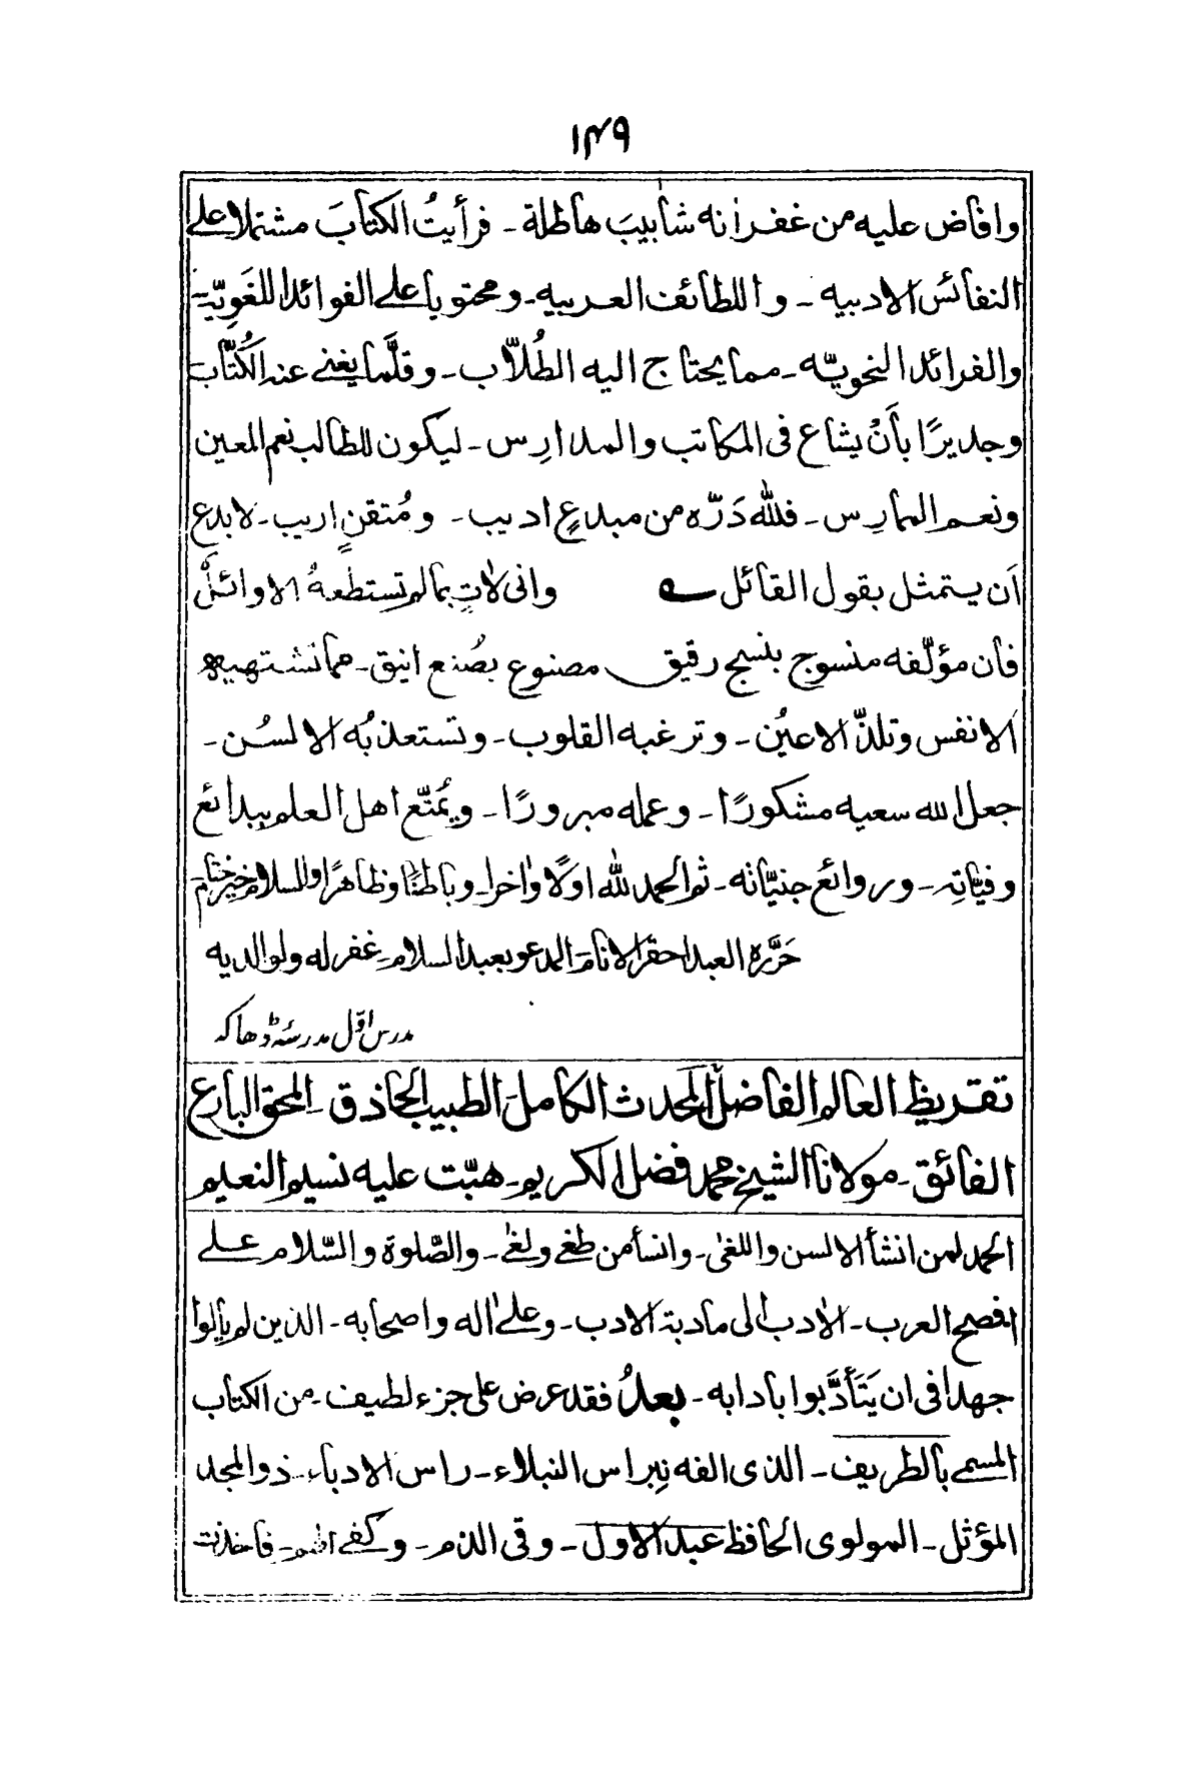 ۱۴۹
وافاض عليه من غفرانه شاٰبيبَ هاطلة ـ فرأيتُ الكتابَ مشتملا على
النفائس الادبيه ـ واللطائف العربيه ـ ومحتويا على الفوائد اللغَوِيّة
والفرائد النحويّه ـ مما يحتاج اليه الطُلّاب ـ وقلَّما يغنى عنه الكُتّاب
وجديرًا بأَنْ يشاع فى المكاتب والمدارِس ـ ليكون للطالب نعم المعين
ونعم الممارِس ـ فللّٰه دَرّه من مبدعٍ اديب ـ ومُتقنٍ اريب ـ لا بدع
اَن يتمثل بقول القائل ؎ وانى لاٰتٍ بما لم تستطعهُ الاوائلُ
فان مؤلّفه منسوج بنسج رقيق مصنوع بصُنع انيق ـ مما تشتهيه
الانفس وتلذّ الاعيُن ـ وترغبه القلوب ـ وتستعذبُه الالسُن ـ
جعل الله سعيه مشكورًا ـ وعمله مبرورًا ـ ويُمَتّع اهل العلم ببدائع
وفيّاتِه ـ وروائع جنيّاته ـ ثم الحمد للّٰه اولًا واٰخرا ـ وباطنًا وظاهرًا والسلام خير ختام
حَرَّره العبد احقر الانام المدعو بعبد السلام غفر له ولوالديه
مدرس اوّل مدرسۂ ڈھاکہ
تقريظ العالم الفاضل المحدث الكامل الطبيب الحاذق ـ المحقق البارع
الفائق ـ مولانا الشيخ محمد فضل الكريم ـ هبّت عليه نسيم النعيم
الحمد لمن انشأ الالسن واللغىٰ ـ وانسأ من طغى ولغىٰ ـ والصّلوة والسّلام على
افصح العرب ـ الاٰدب الى مادبة الادب ـ وعلىٰ اٰله واصحابه ـ الذين لم يألوا
جهدا فى ان يَتَأدَّبوا باٰدابه ـ بعدُ فقد عرض على جزء لطيف ـ من الكتاب
المسمى بالطريف ـ الذى الفه نِبراس النبلاء ـ راس الادباء ـ ذو المجد
المؤثل ـ المولوى الحافظ عبد الاول ـ وقى الذم ـ وكفى الهم ـ فاخذت